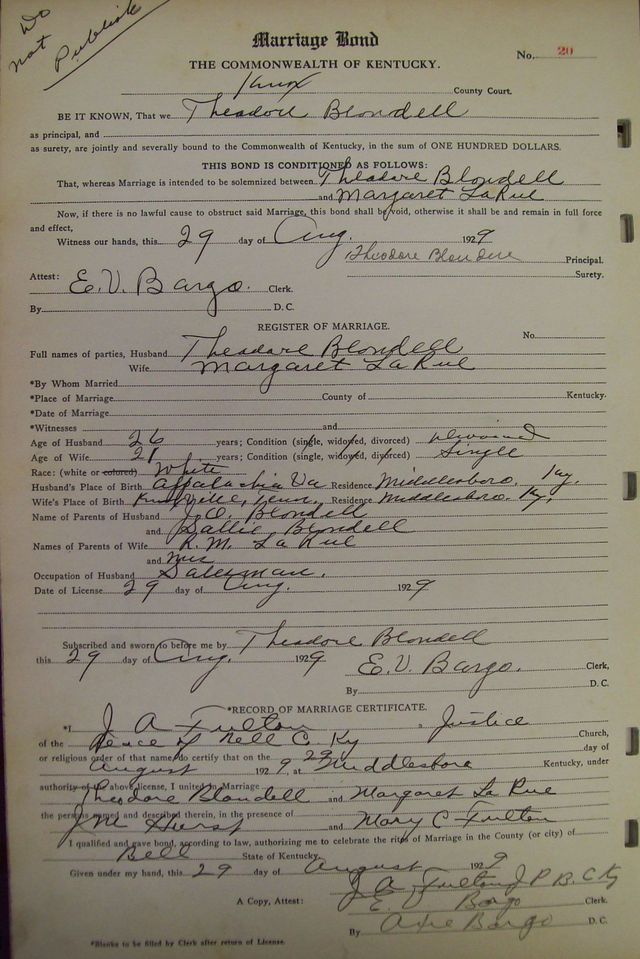 Do not Publish
Marriage Bond
No. 20
THE COMMONWEALTH OF KENTUCKY.
Knox County Court.
BE IT KNOWN, That we Theodore Blondell
as principal, and
as surety, are jointly and severally bound to the Commonwealth of Kentucky, in the sum of ONE HUNDRED DOLLARS.
THIS BOND IS CONDITIONED AS FOLLOWS:
That, whereas Marriage is intended to be solemnized between Theodore Blondell
and Margaret LaRue
Now, if there is no lawful cause to obstruct said Marriage, this bond shall be void, otherwise it shall be and remain in full force
and effect,
Witness our hands, this 29 day of Aug. 1929
Theodore Principal.
Surety.
Attest: E.V. Bargo. Clerk.
By D. C.
REGISTER OF MARRIAGE.
No.
Full names of parties, Husband Theodore Blondell
Wife Margaret LaRue
*By Whom Married
*Place of Marriage County of Kentucky.
*Date of Marriage
*Witnesses and
Age of Husband 26 years; Condition (single, widowed, divorced) divorced
Age of Wife 21 years; Condition (single, widowed, divorced) Single
Race: (white or colored) White
Husband's Place of Birth Appalachia Va Residence Middlesboro, Ky.
Wife's Place of Birth Knoxville, Tenn. Residence Middlesboro. Ky.
Name of Parents of Husband Blondell
and Sallie Blondell
Names of Parents of Wife R.M. LaRue
and
Occupation of Husband Salesman.
Date of License 29 day of Aug. 1929
Subscribed and sworn to before me by Theodore Blondell
this 29 day of Aug. 1929
E.V. Bargo. Clerk,
By D. C.
*RECORD OF MARRIAGE CERTIFICATE.
*I J A Fulton, Justice
of the Peace of Bell C. Ky Church,
or religious order of that name, do certify that on the 29 day of
August 1929, at Middlesboro Kentucky, under
authority of the above license, I united in Marriage
Theodore Blondell and Margaret La Rue
the persons named and described therein, in the presence of
J M Hurst and Mary C Fulton
I qualified and gave bond, according to law, authorizing me to celebrate the rites of Marriage in the County (or city) of
Bell State of Kentucky.
Given under my hand, this 29 day of August 1929
J A Fulton J P B. C Ky
A Copy, Attest: E. Bargo Clerk.
By Bargo D. C.
*Blanks to be filled by Clerk after return of License.